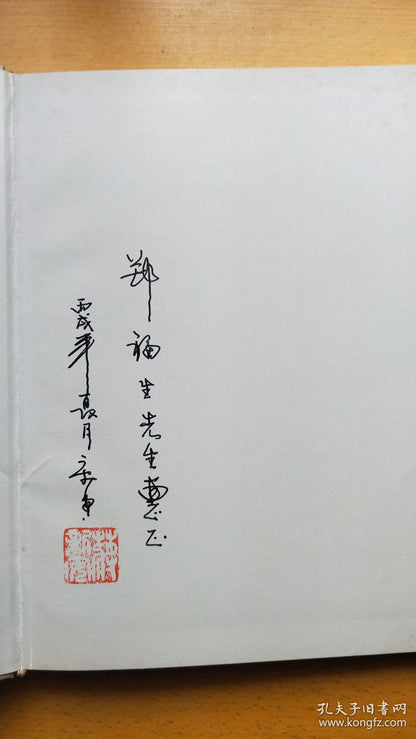 郑福生先生惠正
丙戌年夏月
孔夫子旧书网
www.kongfz.com